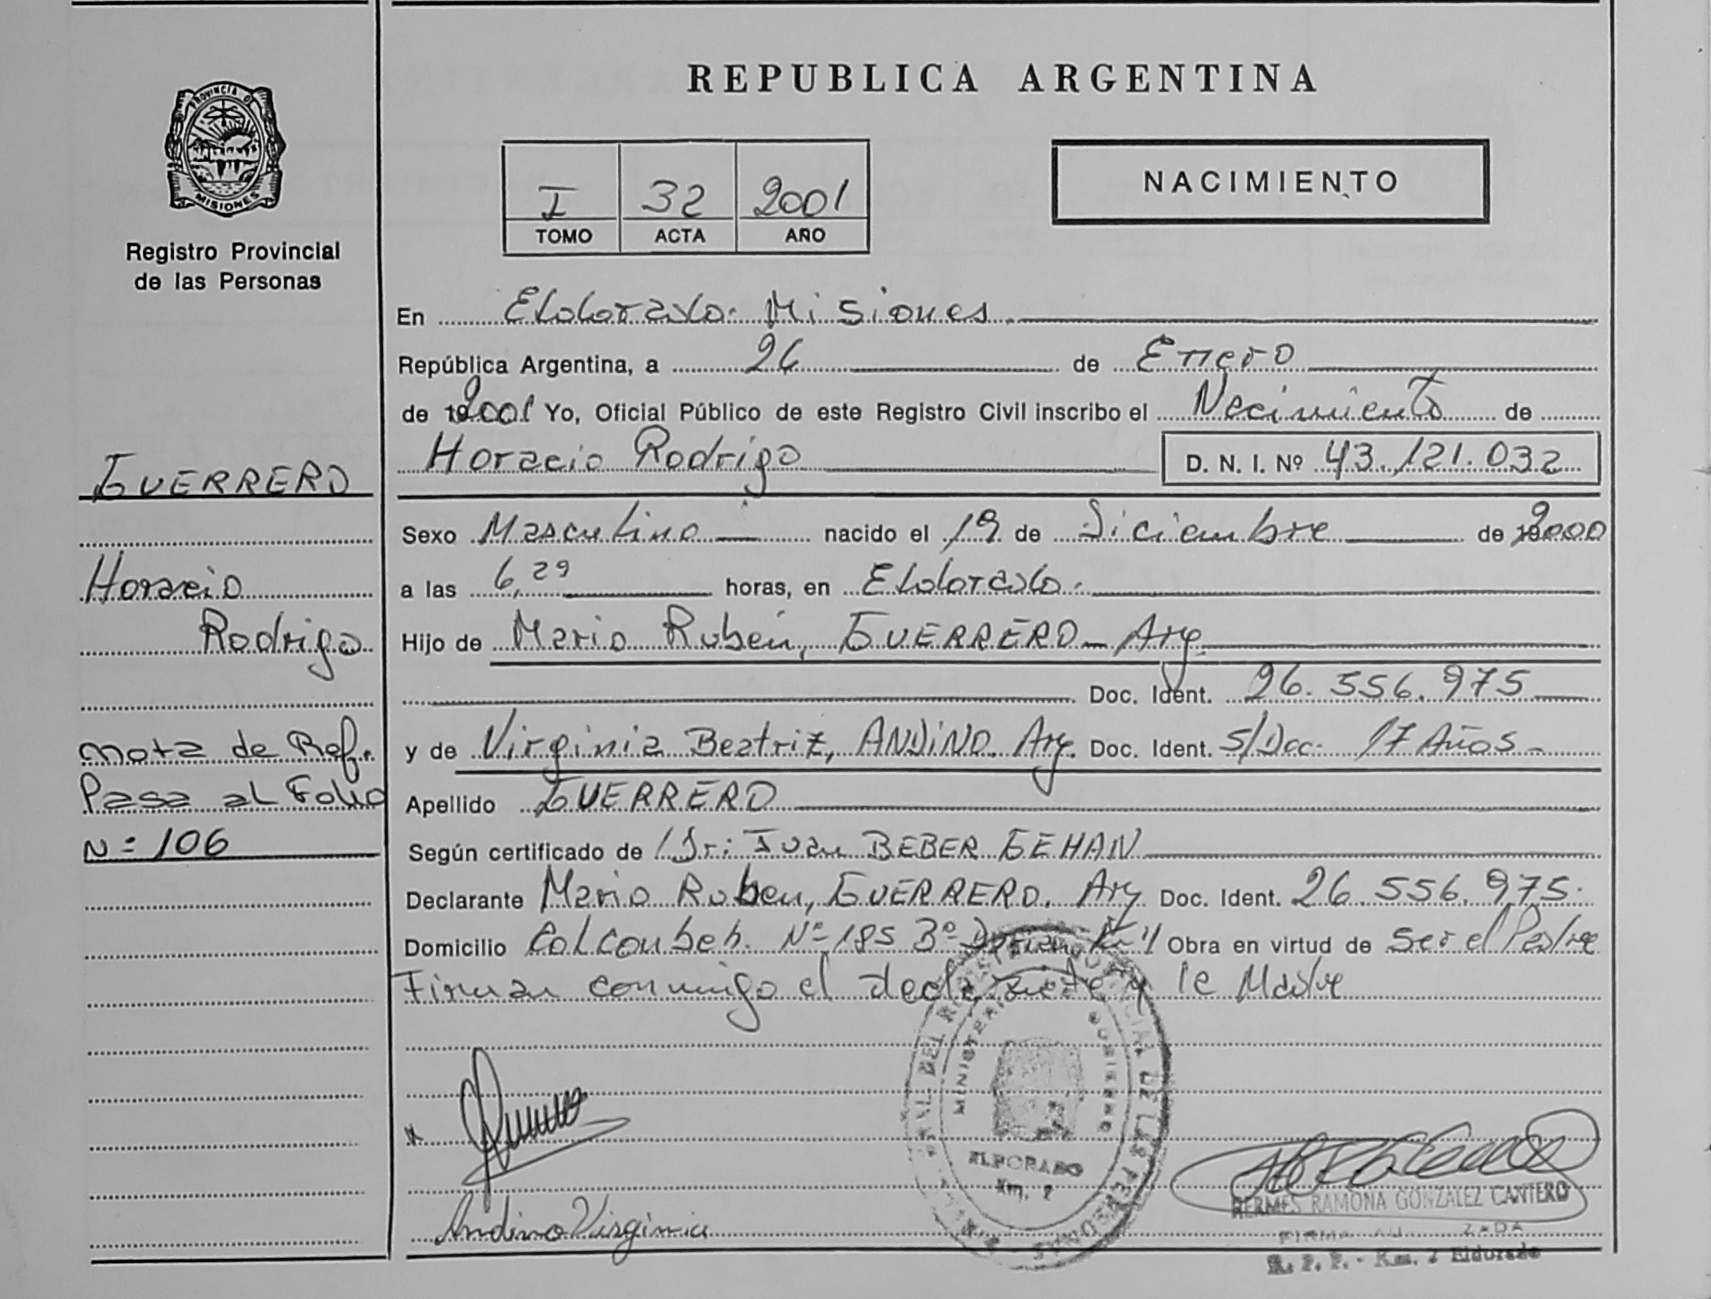 REPUBLICA ARGENTINA
PROVINCIA DE
MISIONES
Registro Provincial
de las Personas
I 32 2001
TOMO ACTA AÑO
NACIMIENTO
En Eldorado. Misiones.
República Argentina, a 26 de Enero
de 2001 Yo, Oficial Público de este Registro Civil inscribo el Nacimiento de
Horacio Rodrigo D. N. I. Nº 43.121.032
GUERRERO
Horacio
Rodrigo
nota de Ref.
Pasa al Folio
Nº 106
Sexo Masculino nacido el 19 de Diciembre de 2000
a las 6,29 horas, en Eldorado.
Hijo de Mario Rubén, GUERRERO Arg.
Doc. Ident. 26.556.975
y de Virginia Beatriz, ANDINO Arg. Doc. Ident. S/Doc. 17 Años
Apellido GUERRERO
Según certificado de Dr: Juan BEBER GEHAN
Declarante Mario Ruben, GUERRERO. Arg Doc. Ident. 26.556.975.
Domicilio Nº 185 3º Obra en virtud de ser el Padre
Firman conmigo el declarante y la Madre
MINISTERIO GOBIERNO
DEL REGISTRO PROVINCIAL DE LAS PERSONAS
ELDORADO
Km. 2
Andino Virginia
HERMES RAMONA GONZALEZ CANTERO
R. P. P. - Km. 2 Eldorado